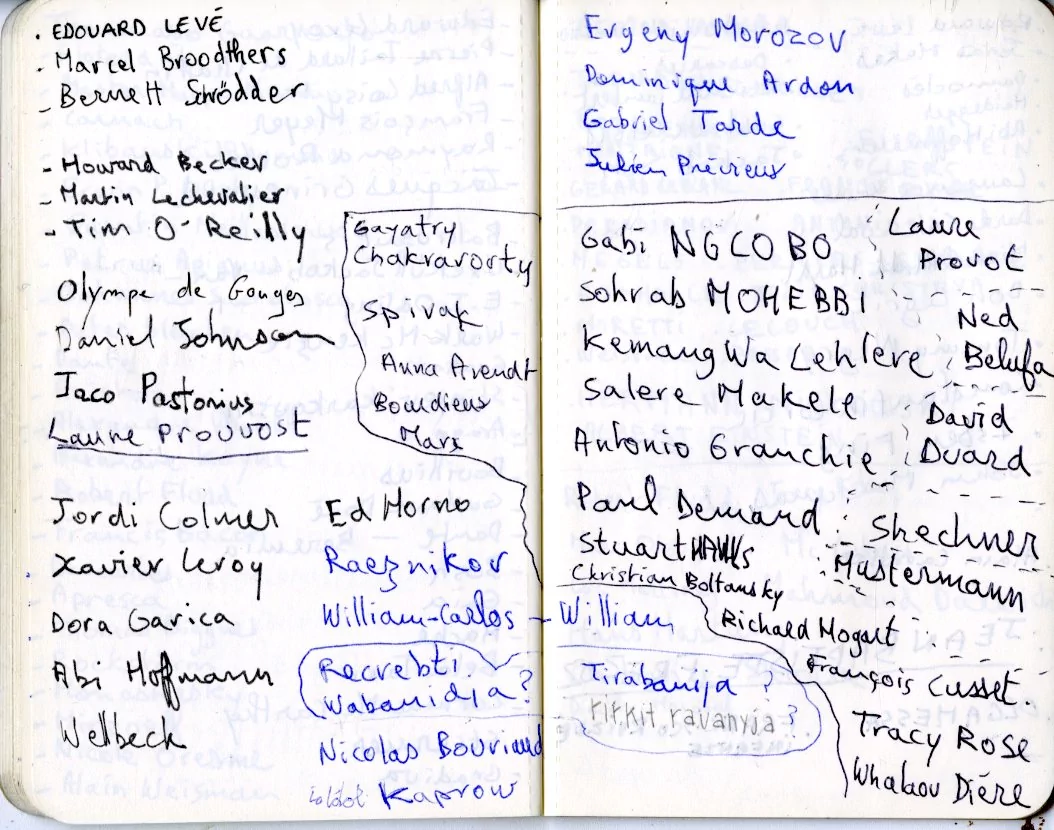 . EDOUARD LEVÉ
. Marcel Broodthers
- Bernett Schrödder
- Howard Becker
- Martin Lechevallier
- Tim O'Reilly
Olympe de Gouges
Daniel Johnson
Jaco Pastorius
Laure Prouvost
Gayatry
Chakravorty
Spivak
Anna Arendt
Bourdieu
Marx
Jordi Colmer
Xavier Leroy
Dora Garica
Abi Hoffmann
Welbeck
Ed Horno
Raeznikov
William-Carlos - William
Recrebti
Wabanidja?
Nicolas Bourriaud
Kaprow
Evgeny Morozov
Dominique Ardon
Gabriel Tarde
Julien Prévieux
Gabi NGCOBO
Sohrab MOHEBBI
Kemang Wa Lehlere
Salere Makele
Antonio Granchie
Paul Demard
Stuart HAWKS
Christian Boltansky
Tirabanija ?
rirkit ravanyja?
Laure
Provot
Ned
Belufa
David
Duard
Shechner
Mustermann
Richard Mogart
François Cusset
Tracy Rose
Whabou Diére